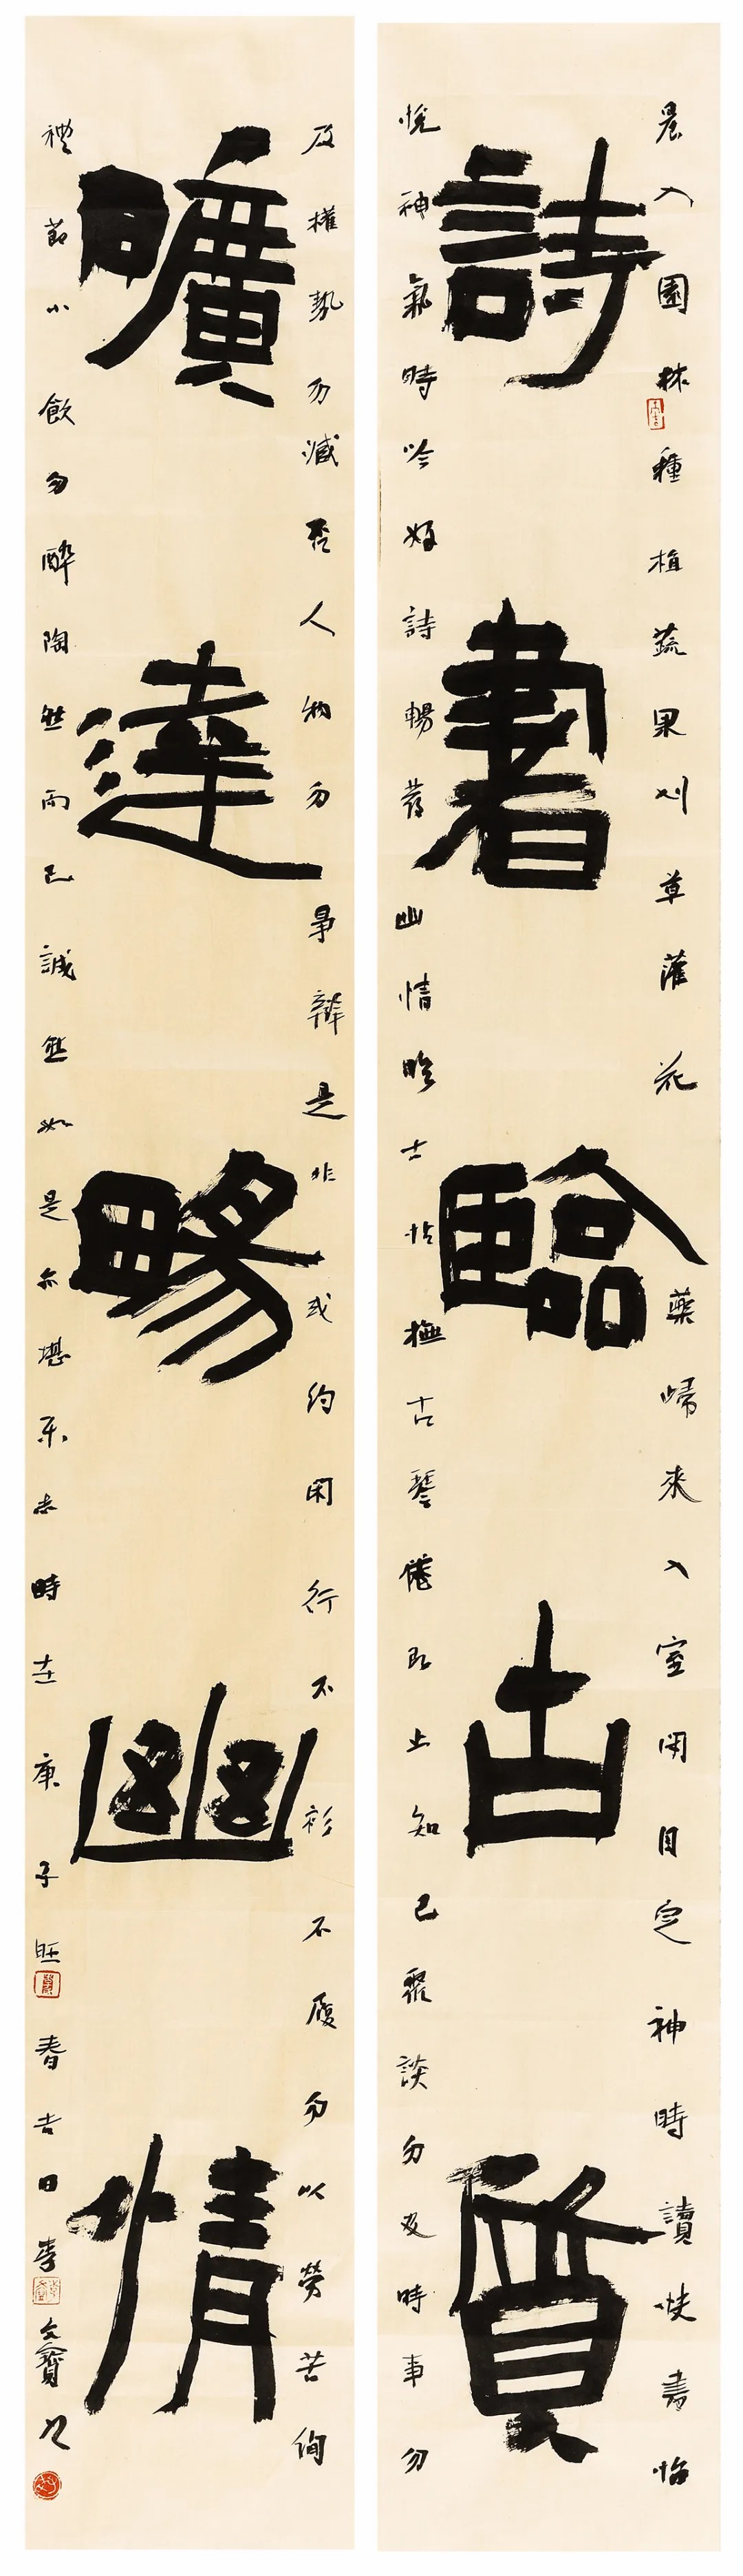 晨入園林種植蔬果刈草灌花藥歸來入室閉目定神時讀快書怡
詩書臨古質
悅神氣時吟好詩暢發幽情臨古帖撫古琴倦即止知己聚談勿及時事勿
及權勢勿臧否人物勿爭辯是非或約閑行不衫不履勿以勞苦徇
曠達畼幽情
禮節小飲勿醉陶然而已誠然如是亦堪樂志時在庚子旺春吉日李文寶